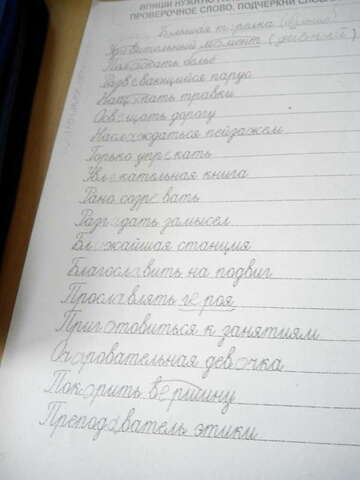 ВПИШИ НУЖНУЮ
ПРОВЕРОЧНОЕ СЛОВО. ПОДЧЕРКНИ
Большая тарелка
Удивительный момент
Полоскать бельё
Развевающийся парус
Нащипать травки
Освещать дорогу
Наслаждаться пейзажем
Горько упрекать
Увлекательная книга
Рано созревать
Разгадать замысел
Ближайшая станция
Благославить на подвиг
Прославлять героя
Приготовиться к занятиям
Очаровательная девочка
Покорить вершину
Преподаватель этики